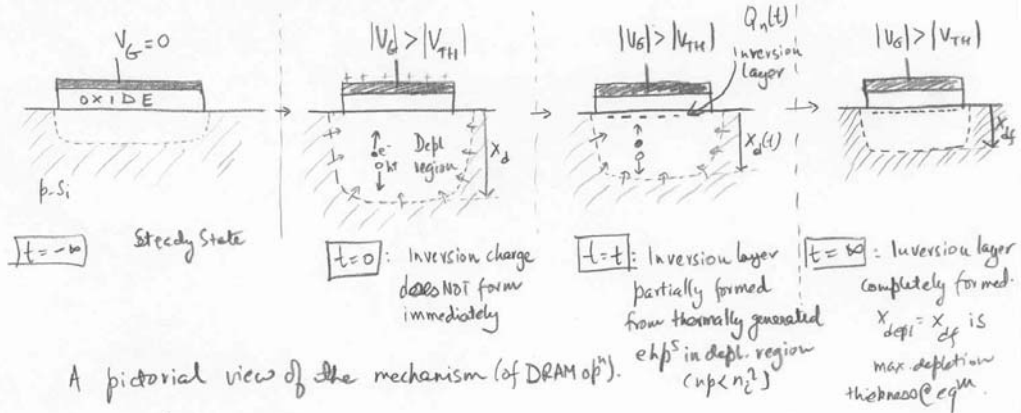 V_G = 0
OXIDE
p-Si
t = -∞
Steady State
|V_G| > |V_TH|
+ + + + + +
e⁻
h⁺
Depl
region
x_d
t=0 : Inversion charge
does NOT form
immediately
Q_n(t)
|V_G| > |V_TH|
inversion
layer
x_d(t)
t=t : Inversion layer
partially formed
from thermally generated
ehpˢ in depl. region
(np < n_i²)
|V_G| > |V_TH|
x_df
t = ∞ : Inversion layer
completely formed.
x_depl = x_df is
max. depletion
thickness @ eqᵐ.
A pictorial view of the mechanism (of DRAM opⁿ).